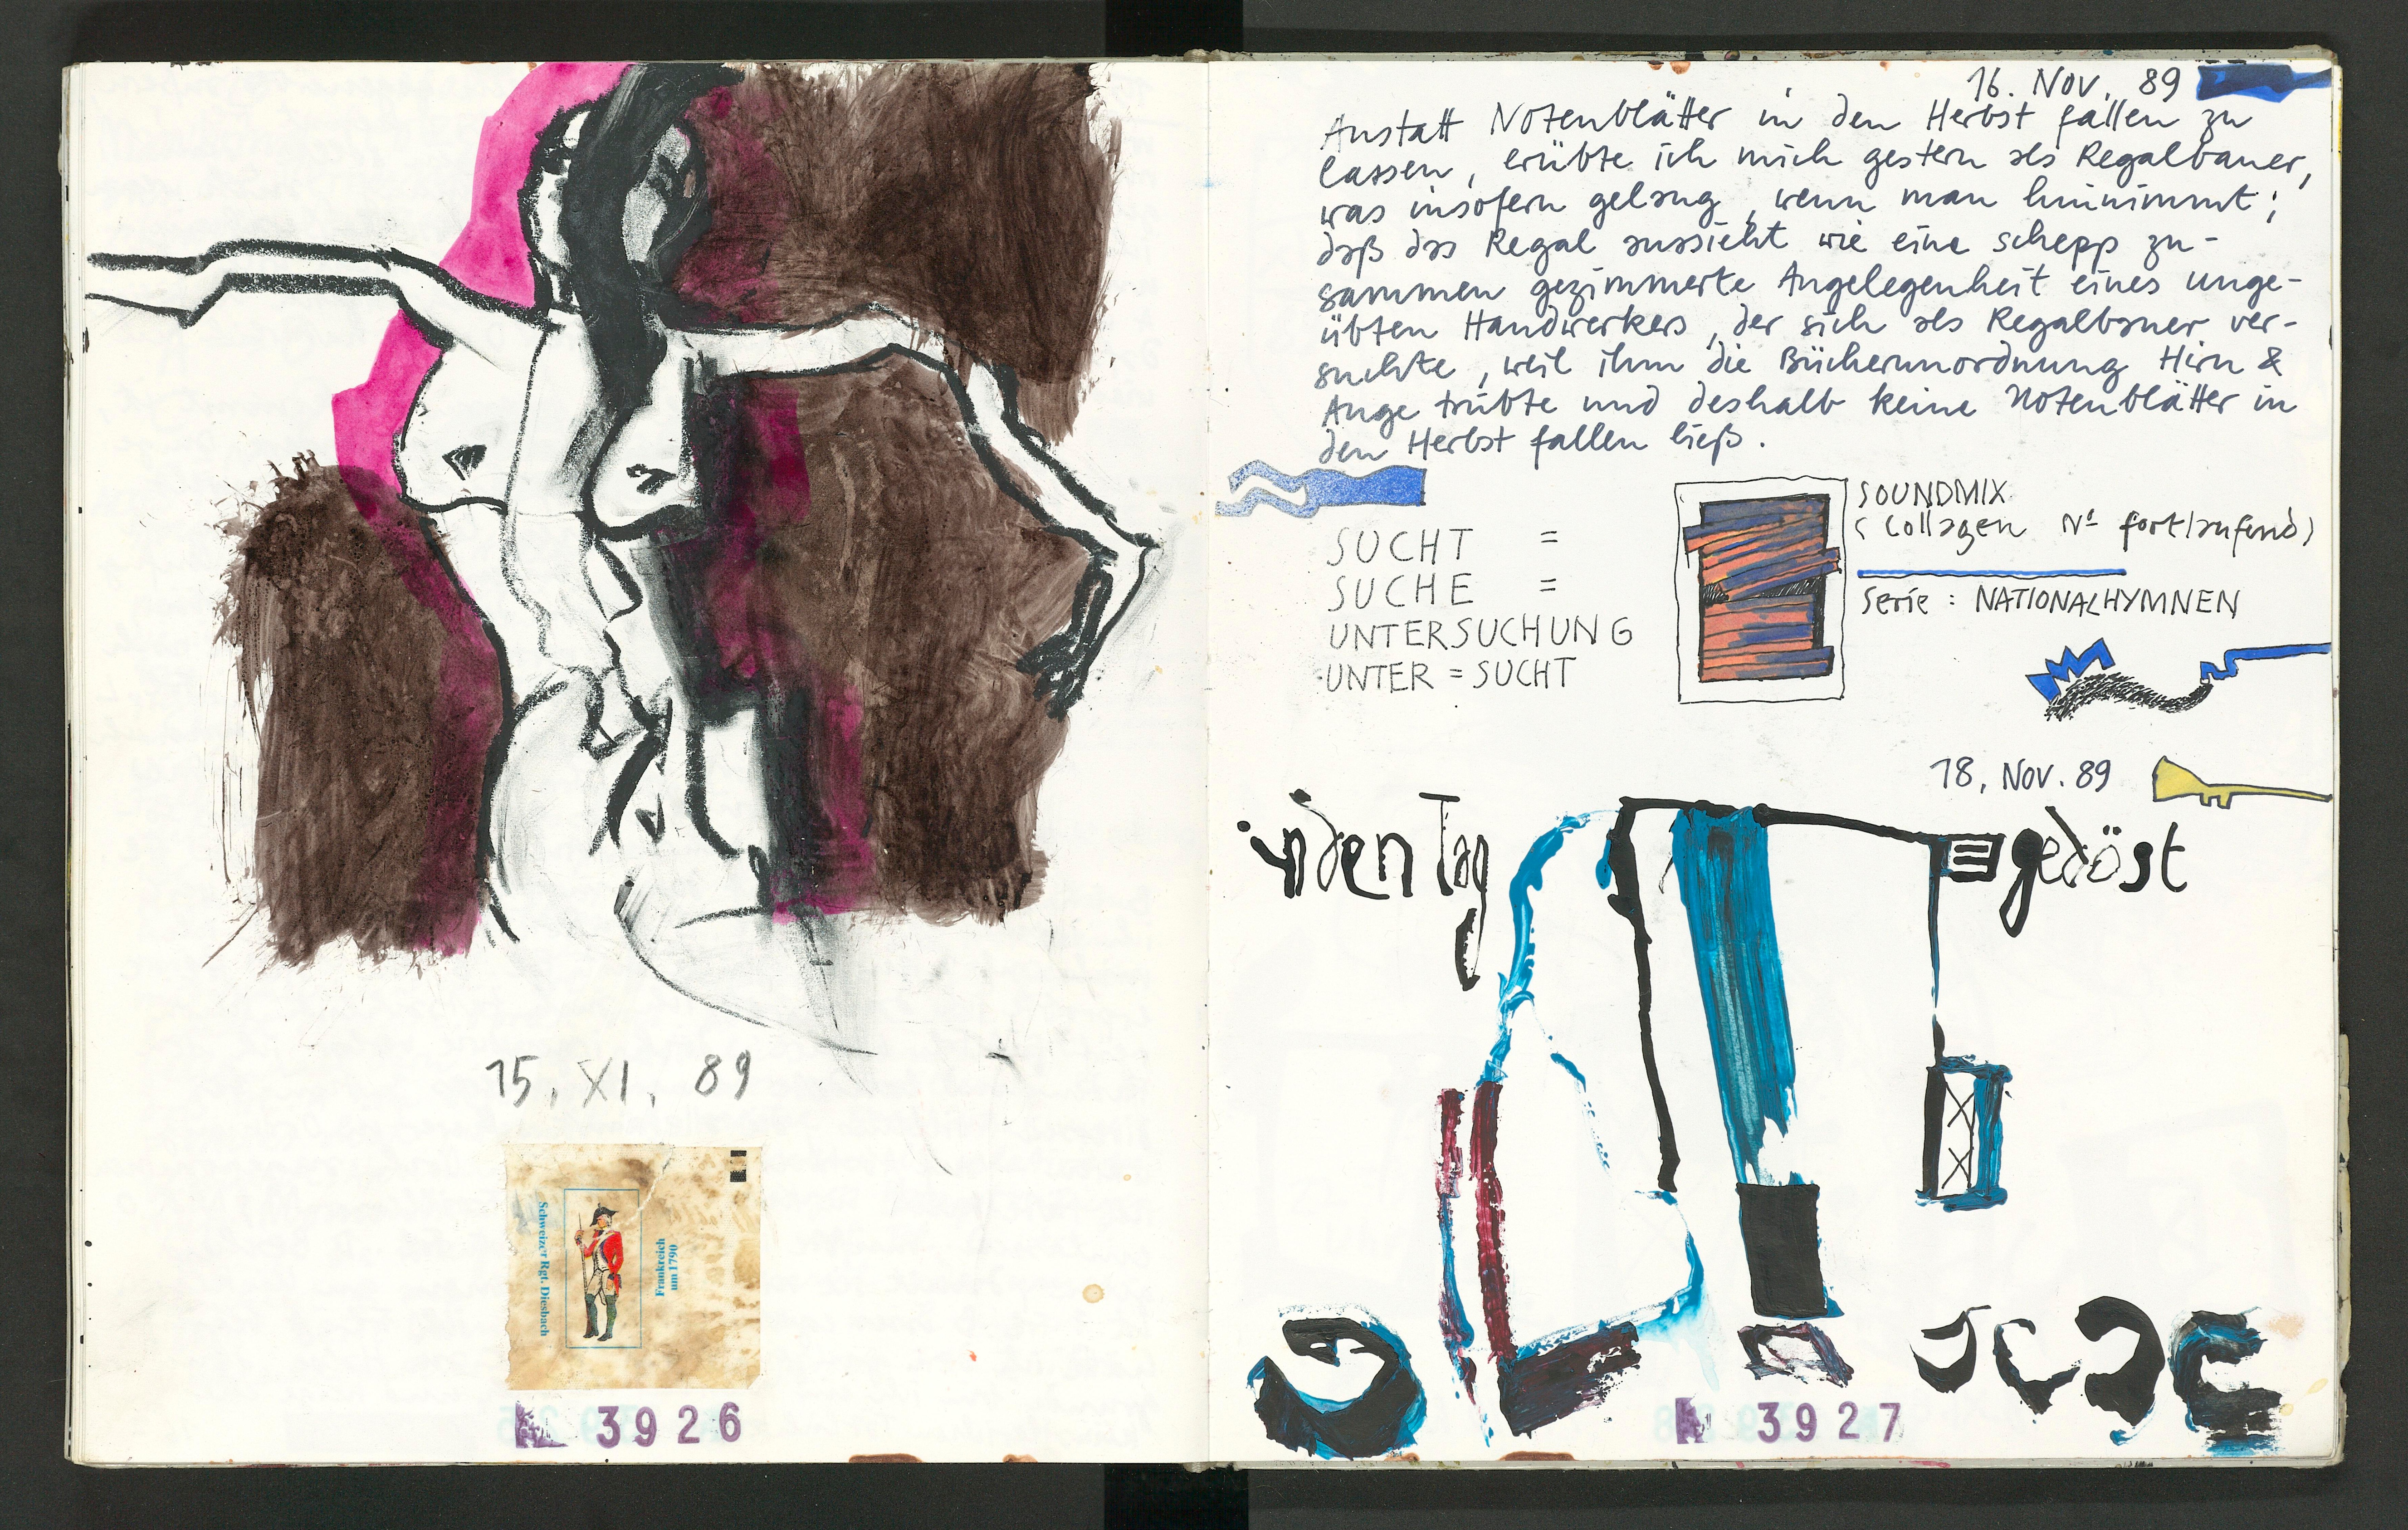 15. XI. 89
Schweizer Rgt. Diesbach
Frankreich
um 1790
3926
16. Nov. 89
Anstatt Notenblätter in den Herbst fallen zu
lassen, erübte ich mich gestern als Regalbauer,
was insofern gelang, wenn man hinnimmt;
daß das Regal aussieht wie eine schepp zu-
sammen gezimmerte Angelegenheit eines unge-
übten Handwerkers, der sich als Regalbauer ver-
suchte, weil ihm die Bücherunordnung Hirn &
Auge trübte und deshalb keine Notenblätter in
den Herbst fallen ließ.
SUCHT =
SUCHE =
UNTERSUCHUNG
UNTER = SUCHT
SOUNDMIX
(Collagen No fortlaufend)
Serie : NATIONALHYMNEN
18. Nov. 89
in den Tag gedöst
3927